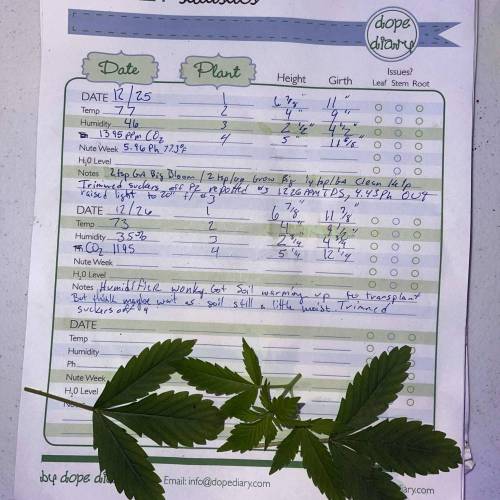 Statistics
dope diary
Date Plant Height Girth Issues?
Leaf Stem Root
DATE 12/25 1 6 7/8" 11"
Temp 77 2 4" 9"
Humidity 46 3 2 1/2" 4 1/2"
1395 ppm CO2 4 5"
Nute Week 5.96 Ph 77.3°F
H2O Level
Notes 2 tsp Gal Big Bloom / 2 tsp/gal Grow Big 1/4 tsp/gal Clean Kelp
Trimmed suckers off P2 repotted #3 1226 PPM TDS, 6.43 Ph
raised light to 20" #3
DATE 12/26 1 6 7/8" 11 7/8"
Temp 73 2 4"
Humidity 35% 3 2 3/4 4 3/4
CO2 1195 4 5 1/4 12 1/4
Nute Week
H2O Level
Notes Humidifier wonky. Got Soil warming up to transplant
But think maybe wait as soil still a little moist. Trimmed
suckers off #4
DATE
Temp
Humidity
Ph
Nute Week
H2O Level
by dope Email: info@dopediary.com diary.com